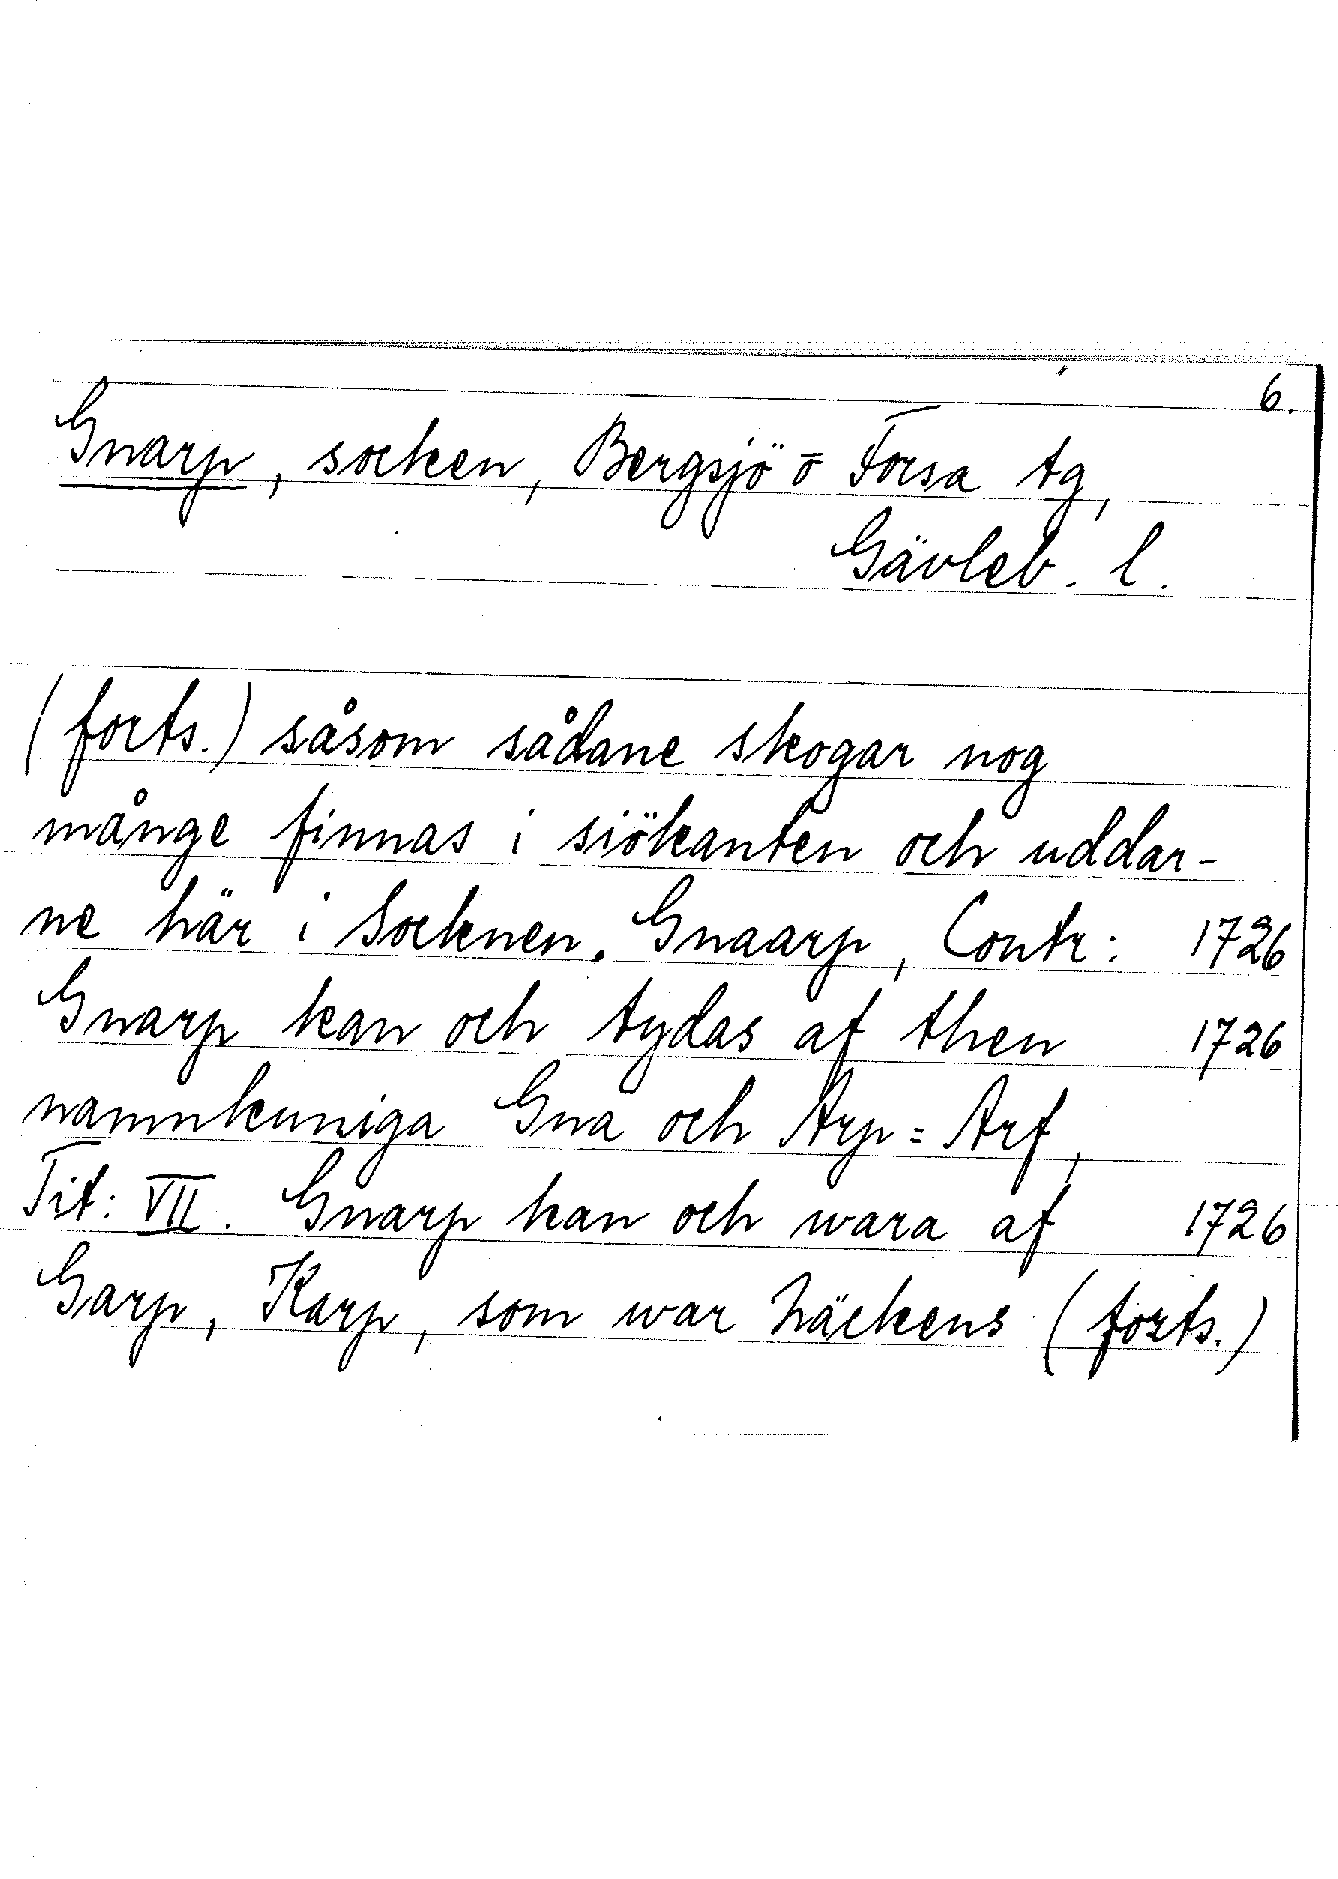 6.
Gnarp, socken, Bergsjö o Forsa tg,
Gävleb. l.
(forts.) såsom sådane skogar nog
månge finnas i siökanten och uddar-
ne här i Socknen. Gnaarp, Contr: 1726
Gnarp kan och tydas af then 1726
namnkuniga Gna och Arp = Arf,
Tit: VII. Gnarp kan och wara af 1726
Garp, Karp, som war Näckens (forts.)